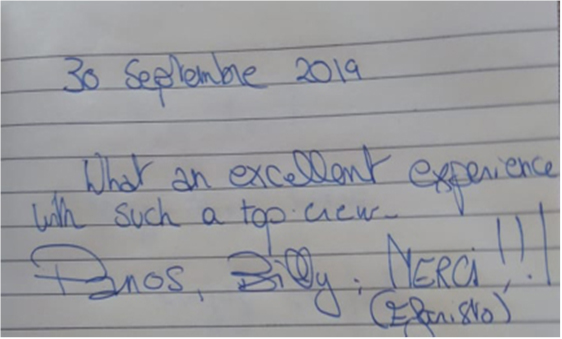 30 Septembre 2019
What an excellent experience
with such a top crew.
Panos, Billy, MERCI!!!
(Efaristo)